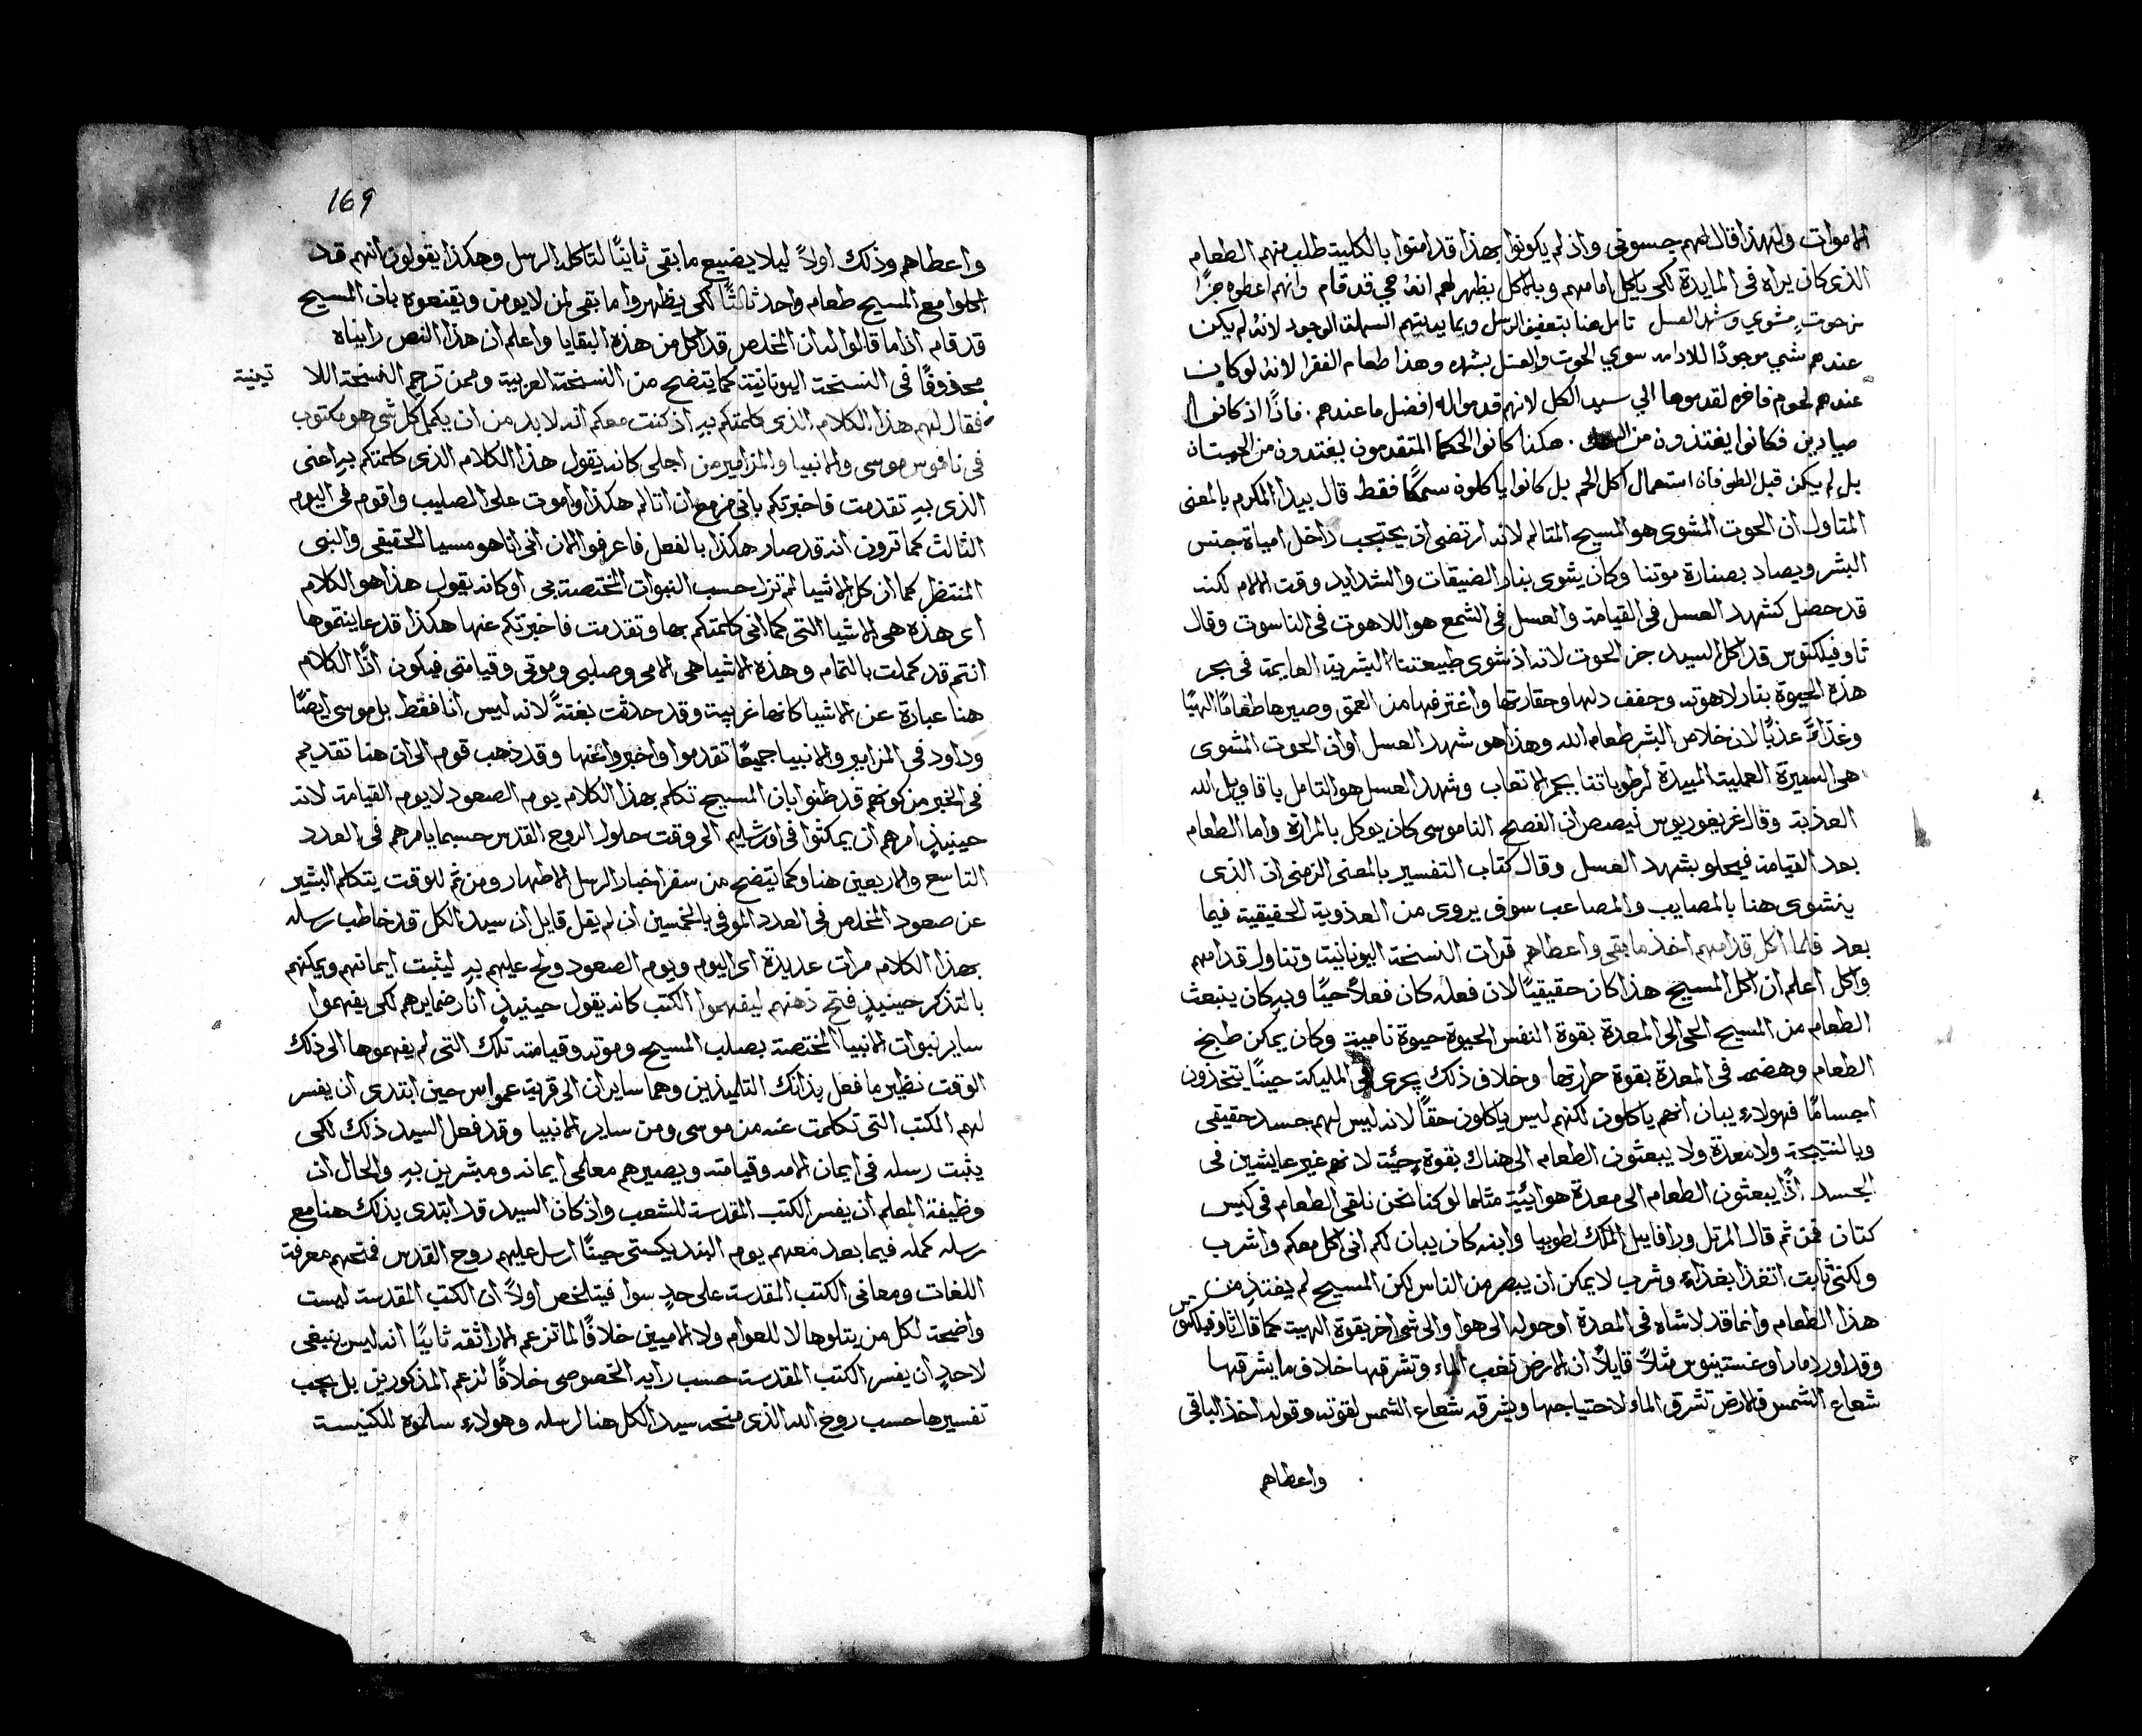 الاموات ولهذا قال لهم جسوني واذ لم يكونوا بهذا قد امنوا بالكلية طلب منهم الطعام
الذي كان يراه في المايدة لكي ياكل امامهم وبالاكل يظهر لهم انهُ حي قد قام وانهم اعطوه جزًا
من حوتٍ مشوي وشهد العسل تامل هنا بتعفيف الرسل وبمايدتهم السهلة الوجود لانهُ لم يكن
عندهم شي موجودًا للادامه سوي الحوت والعسل بشهده وهذا طعام الفقرا لانهُ لو كان
عندهم لحوم فاخره لقدموها الي سيد الكل لانهم قدموا له افضل ما عندهم. فاذًا اذ كانوا
صيادين فكانوا يغتذون من . هكذا كانوا الحكما المتقدمون يغتدون من الحيتان
بل لم يكن قبل الطوفان استعمال اكل اللحم بل كانوا ياكلون سمكًا فقط قال بيدا المكرم بالمعنى
المتاول ان الحوت المشوى هو المسيح المتالم لانه ارتضى ان يحتجب داخل امياه جنس
البشر ويصاد بصنارة موتنا وكان يشوى بنار الضيقات والشدايد وقت الالام لكنه
قد حصل كشهد العسل في القيامة والعسل في الشمع هو اللاهوت في الناسوت وقال
تاوفيلكتوس قد اكل السيد جز الحوت لانه اذ شوى طبيعتنا البشرية العايمة في بحر
هذه الحيوة بنار لاهوته وجفف دلها وحقارتها واغترفها من العمق وصيرها طعامًا الهيًا
وغذاءً عذبًا لان خلاص البشر طعام الله وهذا هو شهد العسل او ان الحوت المشوى
هى السيرة العملية المبيدة لرطوباتنا بجمر الاتعاب وشهد العسل هو التامل باقاويل الله
العذبة وقال غريغوريوس نيصص ان الفصح الناموسى كان يوكل بالمرارة واما الطعام
بعد القيامة فيحلو بشهد العسل وقال كتاب التفسير بالمعنى الزمنى ان الذى
ينشوى هنا بالمصايب والمصاعب سوف يروى من العذوبة الحقيقية فيما
بعد فلما اكل قدامهم اخذ ما بقى واعطاهم قرات النسخة اليونانية وتناول قدامهم
واكل اعلم ان اكل المسيح هذا كان حقيقيًا لان فعله كان فعلاً حيًا وبهِ كان ينبعث
الطعام من المسيح الحى الى المعدة بقوة النفس الحيوة حيوة نامية وكان يمكن طبخ
الطعام وهضمه في المعدة بقوة حرارتها وخلاف ذلك يجرى في المليكة حينًا يتخذون
اجسامًا فهولاء يبان انهم ياكلون لكنهم ليس ياكلون حقًا لانه ليس لهم جسد حقيقى
وبالنتيجة ولا معدة ولا يبعثون الطعام الى هناك بقوة حيّة لانهم غير عايشين في
الجسد اذًا يبعثون الطعام الى معدة هوائية مثلما لو كنا نحن نلقى الطعام في كيس
كتان فمن ثم قال المرتل ورافاييل الملك لطوبيا وابنه كان يبان لكم انى اكل معكم واشرب
ولكنى ثابت اتغذا بغذاء وشرب لا يمكن ان يبصر من الناس لكن المسيح لم يغتذِ من
هذا الطعام وانما قد لاشاه في المعدة او حوله الى هوا والى شى اخر بقوة الهية كما قال تاوفيلكتوس
وقد اورد مار اوغستينوس مثلاً قايلاً ان الارض تغب الماء وتشرقها خلاف ما يشرقها
شعاع الشمس فالارض تشرق الماء لاحتياجها ويشرقه شعاع الشمس لقوته وقوله اخذ الباقى
واعطاهم
169
واعطاهم وذلك اولاً ليلا يضيع ما بقى ثانيًا لتاكله الرسل وهكذا يقولون انهم قد
اكلوا مع المسيح طعام واحد ثالثًا لكى يظهروا ما بقى لمن لا يومن ويقنعوه بان المسيح
قد قام اذا ما قالوا له ان المخلص قد اكل من هذه البقايا واعلم ان هذا النص رايناه
محذوفًا في النسخة اليونانية كما يتضح من النسخة العربية وممن ترجم النسخة اللا
تينية
فقال لهم هذا الكلام الذى كلمتكم بهِ اذ كنت معكم انه لا بد من ان يكمل كل شى هو مكتوب
في ناموس موسى والانبيا والمزامير من اجلى كانه يقول هذا الكلام الذى كلمتكم بهِ اعنى
الذى بهِ تقدمت فاخبرتكم بانى مزمع ان اتالم هكذا واموت على الصليب واقوم في اليوم
الثالث كما ترون انه قد صار هكذا بالفعل فاعرفوا الان انى انا هو مسيا الحقيقى والنبى
المنتظر كما ان كل الاشيا تمت حسب النبوات المختصة بى او كانه يقول هذا هو الكلام
اى هذه هى الاشيا التى كما انى كلمتكم بها وتقدمت فاخبرتكم عنها هكذا قد عاينتموها
انتم قد كملت بالتمام وهذه الاشيا هى الامى وصلبى وموتى وقيامتى فيكون اذًا الكلام
هنا عبارة عن الاشيا كانها غريبة وقد حدثت بغتةً لانه ليس انا فقط بل موسى ايضًا
وداود في المزامير والانبيا جميعًا تقدموا واخبروا عنها وقد ذهب قوم الى ان هنا تقديم
في الخبر من كونهم قد ظنوا بان المسيح تكلم بهذا الكلام يوم الصعود لا يوم القيامة لانه
حينيذٍ امرهم ان يمكثوا في اورشليم الى وقت حلول الروح القدس حسبما يامرهم في العدد
التاسع والاربعين هنا وكما يتضح من سفر اخبار الرسل الاطهار ومن ثم للوقت يتكلم البشير
عن صعود المخلص في العدد الموفى بالخمسين ان لم يقل قايل ان سيد الكل قد خاطب رسله
بهذا الكلام مرات عديدة اى اليوم ويوم الصعود ولح عليهم بهِ ليثبت ايمانهم ويمكنهم
بالتذكر حينيذٍ فتح ذهنهم ليفهموا الكتب كانه يقول حينيذٍ انار ضمايرهم لكى يفهموا
ساير نبوات الانبيا المختصة بصلب المسيح وموته وقيامته تلك التى لم يفهموها الى ذلك
الوقت نظير ما فعل بذانك التلميذين وهما سايران الى قرية عمواس حين ابتدى ان يفسر
لهم الكتب التى تكلمت عنه من موسى ومن ساير الانبيا وقد فعل السيد ذلك لكى
يثبت رسله في ايمان الامه وقيامته ويصيرهم معلمى ايمانه ومبشرين بهِ والحال ان
وظيفة المعلم ان يفسر الكتب المقدسة للشعب واذ كان السيد قد ابتدى بذلك هنا مع
رسله كمله فيما بعد معهم يوم البنديكستى حينًا ارسل عليهم روح القدس فمنحهم معرفة
اللغات ومعانى الكتب المقدسة على حدٍ سوا فيتلخص اولاً ان الكتب المقدسة ليست
واضحة لكل من يتلوها لا للعوام ولا الاميين خلافًا لما تزعم الاراتقه ثانيًا انه ليس ينبغى
لاحدٍ ان يفسر الكتب المقدسة حسب رايه الخصوصى خلافًا لزعم المذكورين بل يجب
تفسيرها حسب روح الله الذى منحه سيد الكل هنا لرسله وهولاء سلموه للكنيسة